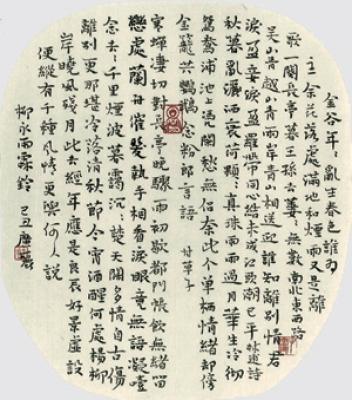 金谷年々亂生春色誰為
主余花落處滿地和煙雨又是離
歌一闋長亭暮王孫去萋々無數南北東西路
吳山青越山青兩岸青山相送迎誰知離別情君
淚盈妾淚盈羅帶同心結未成江頭潮已平 林逋詩
秋暮亂灑衰荷顆々真珠雨雨過月華生冷徹
鴛鴦浦池上憑闌愁無侶奈此个單栖情緒却傍
金籠共鸚鵡念粉郎言語 甘草子
寒蟬淒切對長亭晚驟雨初歇都門帳飲無緒留
戀處蘭舟催發執手相看淚眼竟無語凝噎
念去々千里煙波暮靄沉々楚天闊多情自古傷
離別更那堪冷落清秋節今宵酒醒何處楊柳
岸曉風殘月此去經年應是良辰好景虛設
便縱有千種風情更與何人說
柳永雨霖鈴 己丑